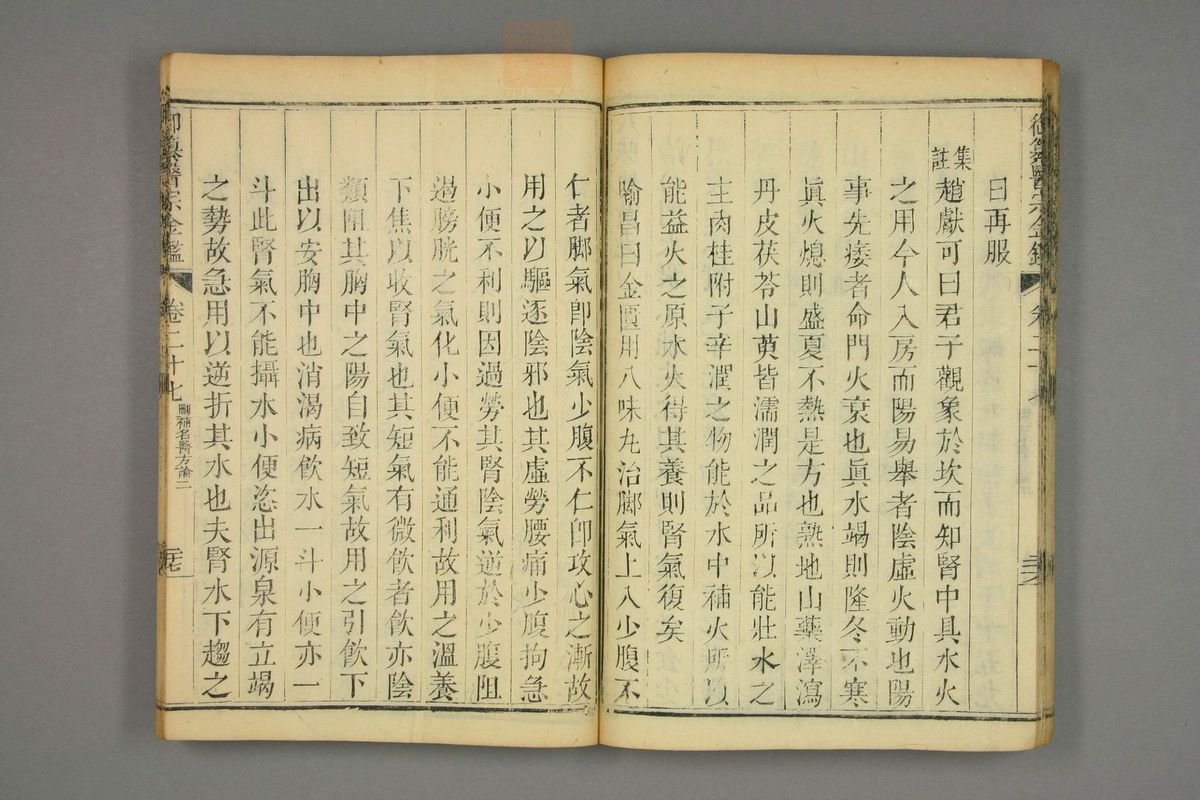 御纂醫宗金鑑
卷二十七
曰再服
集註趙獻可曰君子觀象於坎而知腎中具水火
之用今人入房而陽易舉者陰虛火動也陽
事先痿者命門火衰也眞水竭則隆冬不寒
眞火熄則盛夏不熱是方也熟地山藥澤瀉
丹皮茯苓山萸皆濡潤之品所以能壯水之
主肉桂附子辛潤之物能於水中補火所以
能益火之原水火得其養則腎氣復矣
喻昌曰金匱用八味丸治脚氣上入少腹不
仁者脚氣卽陰氣少腹不仁卽攻心之漸故
用之以驅逐陰邪也其虛勞腰痛少腹拘急
小便不利則因過勞其腎陰氣逆於少腹阻
遏膀胱之氣化小便不能通利故用之溫養
下焦以收腎氣也其短氣有微飲者飲亦陰
類阻其胸中之陽自致短氣故用之引飲下
出以安胸中也消渴病飲水一斗小便亦一
斗此腎氣不能攝水小便恣出源泉有立竭
之勢故急用以逆折其水也夫腎水下趨之
御纂醫宗金鑑
卷二十七
刪補名醫方論二